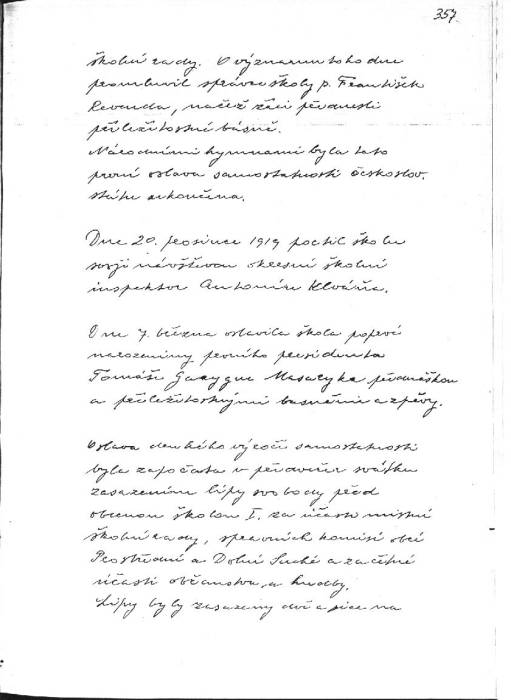 357
školní rady. O významu toho dne
promluvil správce školy p. František
Revenda, načež žáci přednesli
příležitostné básně.
Národními hymnami byla tato
první oslava samostatnosti českoslov.
státu zakončena.
Dne 20. prosince 1919 poctil školu
svojí návštěvou okresní školní
inspektor Antonín Klváňa.
Dne 7. března oslavila škola poprvé
narozeniny prvního presidenta
Tomáše Masaryka přednáškou
a příležitostnými básněmi a zpěvy.
Oslava druhého výročí samostatnosti
byla započata v předvečer svátku
zasazením lípy svobody před
obecnou školou I. za účasti místní
školní rady, správních komisí obcí
Prostřední a Dolní Suché a za četné
účasti občanstva, a hudby.
Lípy byly zasazeny dvě a sice na